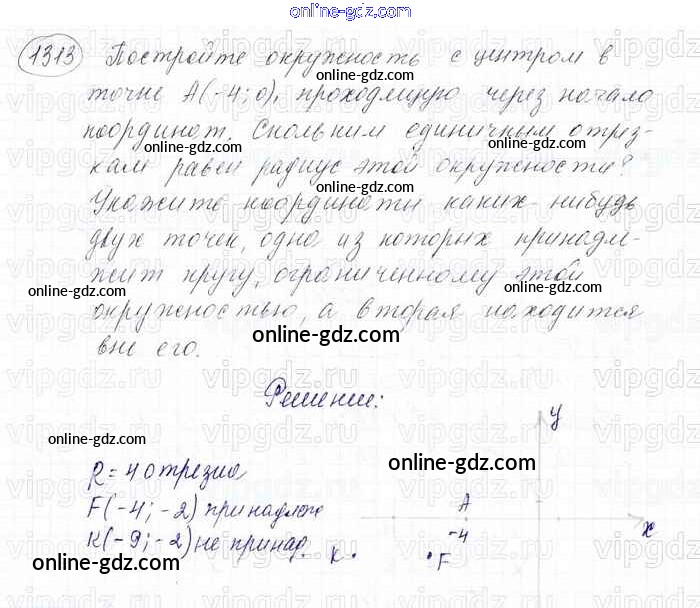 online-gdz.com
1313 Постройте окружность с центром в
точке A(-4; 0), проходящую через начало
координат. Скольким единичным отрез-
кам равен радиус этой окружности?
Укажите координаты каких-нибудь
двух точек, одна из которых принадле-
жит кругу, ограниченному этой
окружностью, а вторая находится
вне его.
Решение:
R = 4 отрезка
F(-4; -2) принадлеж
K(-9; -2) не принад.
y
A
-4
x
K
F
online-gdz.com
online-gdz.com
online-gdz.com
online-gdz.com
online-gdz.com
online-gdz.com
online-gdz.com
online-gdz.com
online-gdz.com
online-gdz.com
online-gdz.com
vipgdz.ru